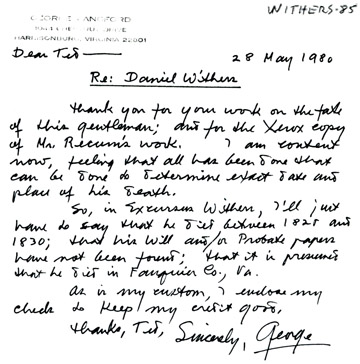 WITHERS-85
GEORGE LANGFORD
HARRISONBURG, VIRGINIA 22001
Dear Ted —
28 May 1980
Re: Daniel Withers
Thank you for your work on the fate
of this gentleman; and for the Xerox copy
of Mr. work. I am content
now, feeling that all has been done that
can be done to determine exact date and
place of his death.
So, in Excursus Withers, I'll just
have to say that he died between 1828 and
1830; that his Will and/or Probate papers
have not been found; that it is presumed
that he died in Fauquier Co., Va.
As is my custom, I enclose my
check to keep my credit good.
Thanks, Ted, Sincerely, George